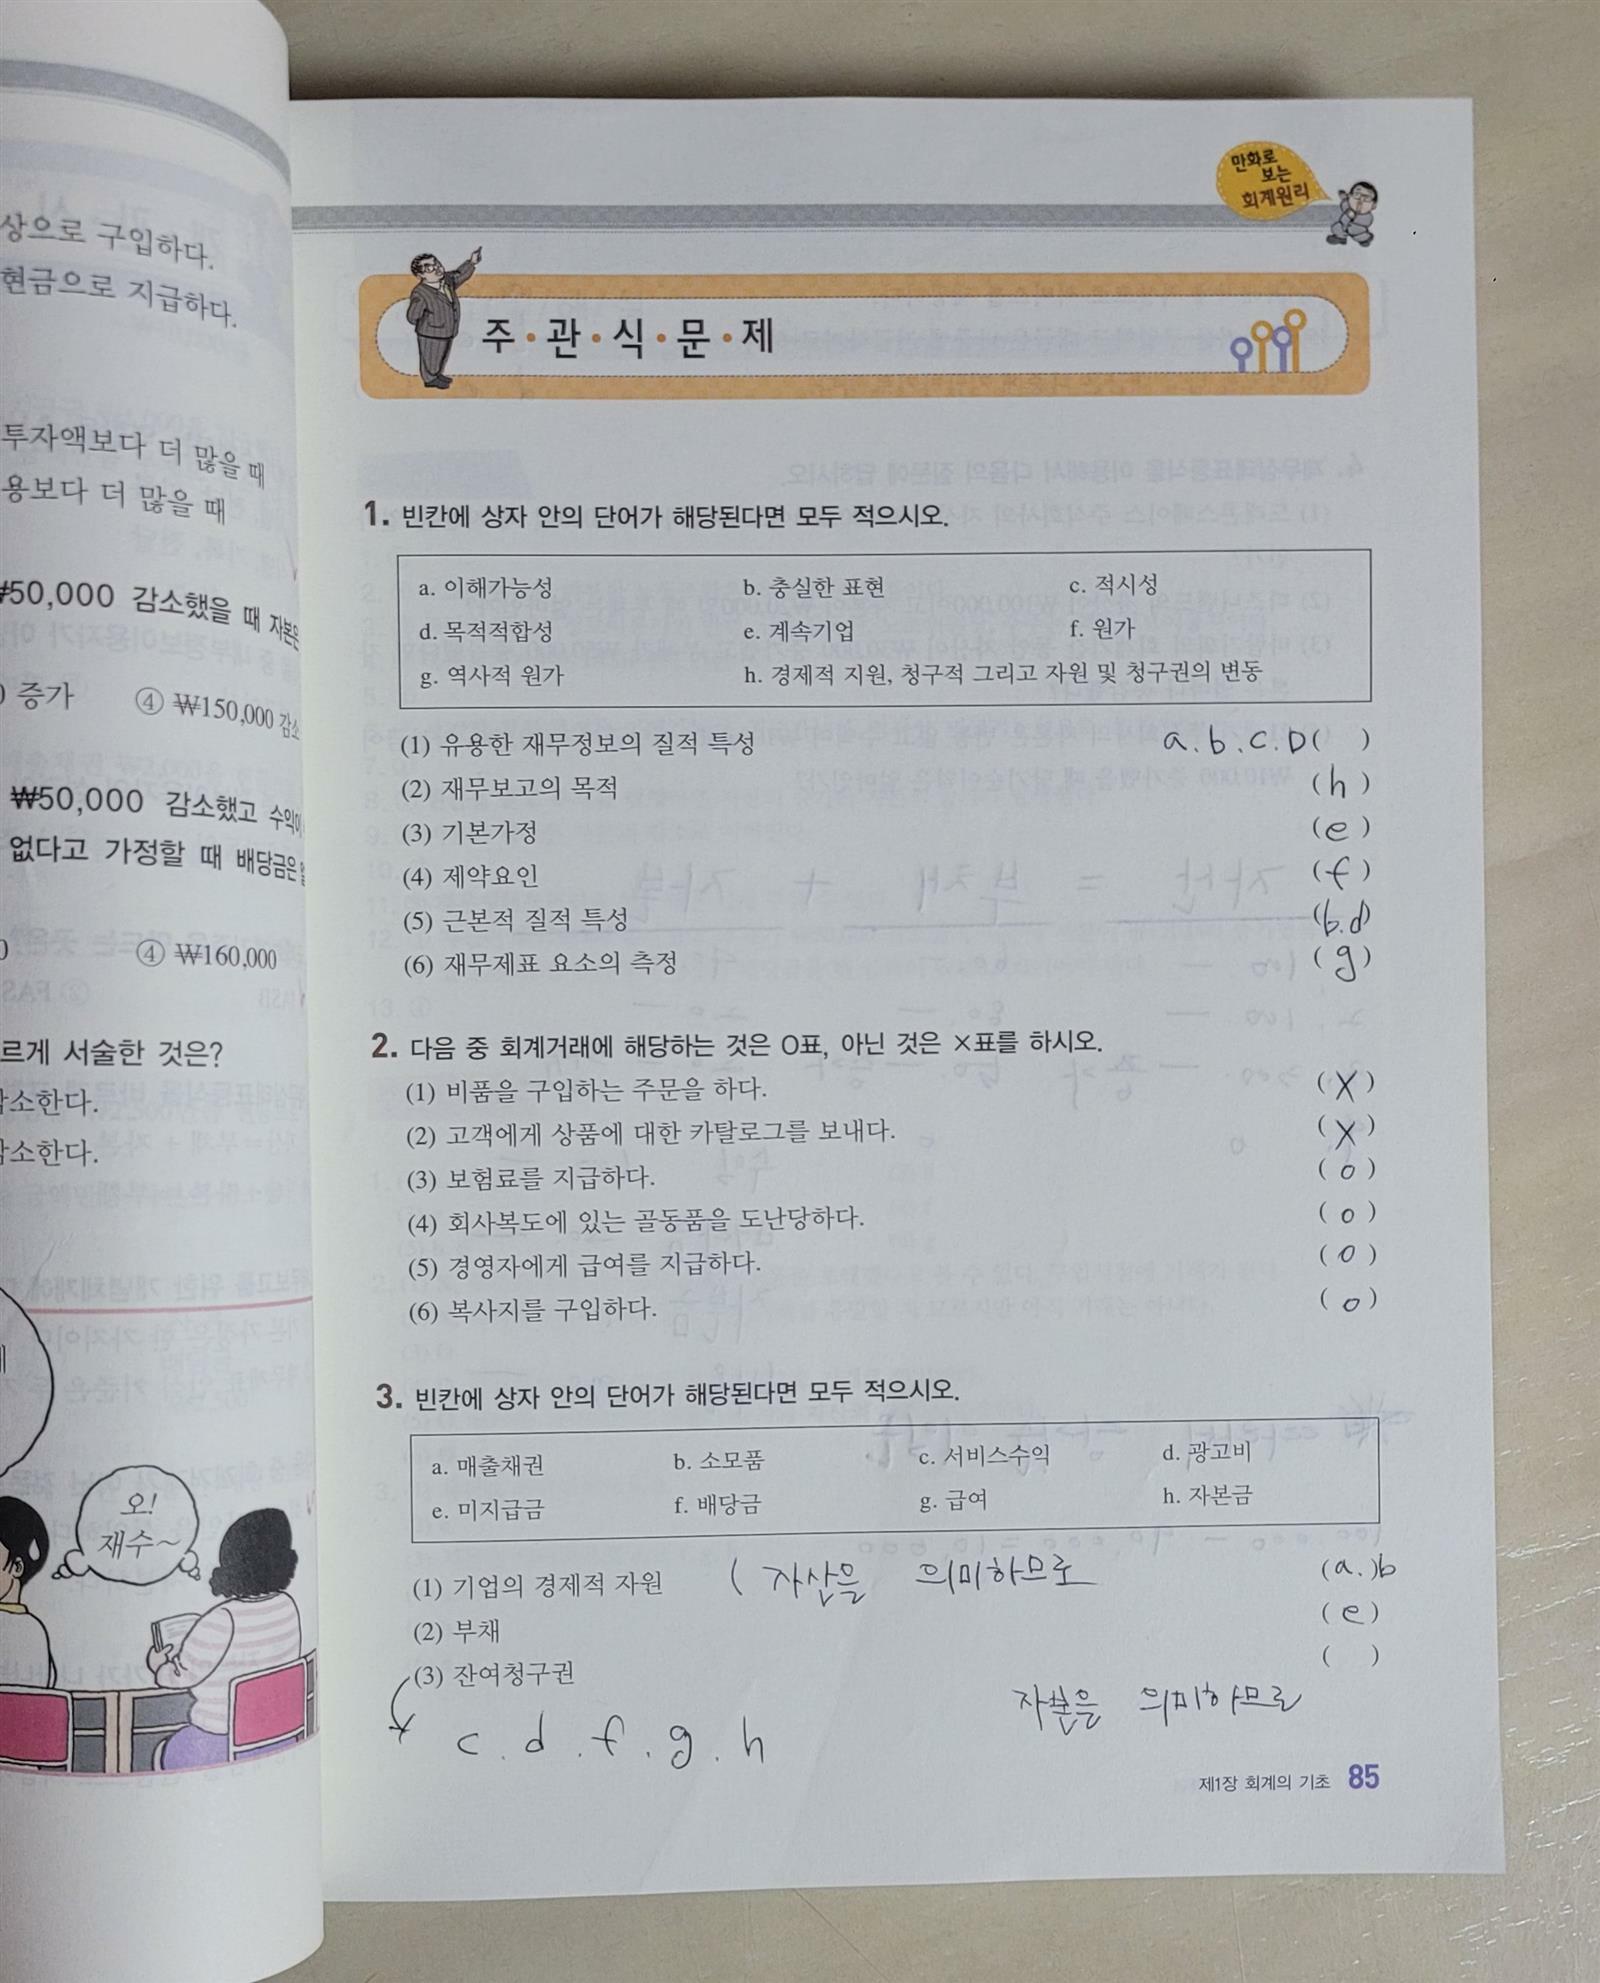 상으로 구입하다.
현금으로 지급하다.
투자액보다 더 많을 때
용보다 더 많을 때
₩50,000 감소했을 때 자본은
증가 ④ ₩150,000 감소
₩50,000 감소했고 수익이
없다고 가정할 때 배당금은
④ ₩160,000
르게 서술한 것은?
감소한다.
감소한다.
오!
재수~
만화로
보는
회계원리
주·관·식·문·제
1. 빈칸에 상자 안의 단어가 해당된다면 모두 적으시오.
a. 이해가능성 b. 충실한 표현 c. 적시성
d. 목적적합성 e. 계속기업 f. 원가
g. 역사적 원가 h. 경제적 지원, 청구적 그리고 자원 및 청구권의 변동
(1) 유용한 재무정보의 질적 특성 a.b.c.D( )
(2) 재무보고의 목적 (h)
(3) 기본가정 (e)
(4) 제약요인 (f)
(5) 근본적 질적 특성 (b.d)
(6) 재무제표 요소의 측정 (g)
2. 다음 중 회계거래에 해당하는 것은 O표, 아닌 것은 ×표를 하시오.
(1) 비품을 구입하는 주문을 하다. (X)
(2) 고객에게 상품에 대한 카탈로그를 보내다. (X)
(3) 보험료를 지급하다. (o)
(4) 회사복도에 있는 골동품을 도난당하다. (o)
(5) 경영자에게 급여를 지급하다. (o)
(6) 복사지를 구입하다. (o)
3. 빈칸에 상자 안의 단어가 해당된다면 모두 적으시오.
a. 매출채권 b. 소모품 c. 서비스수익 d. 광고비
e. 미지급금 f. 배당금 g. 급여 h. 자본금
(1) 기업의 경제적 자원 ( 자산을 의미하므로 (a.)b
(2) 부채 (e)
(3) 잔여청구권 ( )
자본을 의미하므로
c.d.f.g.h
제1장 회계의 기초 85